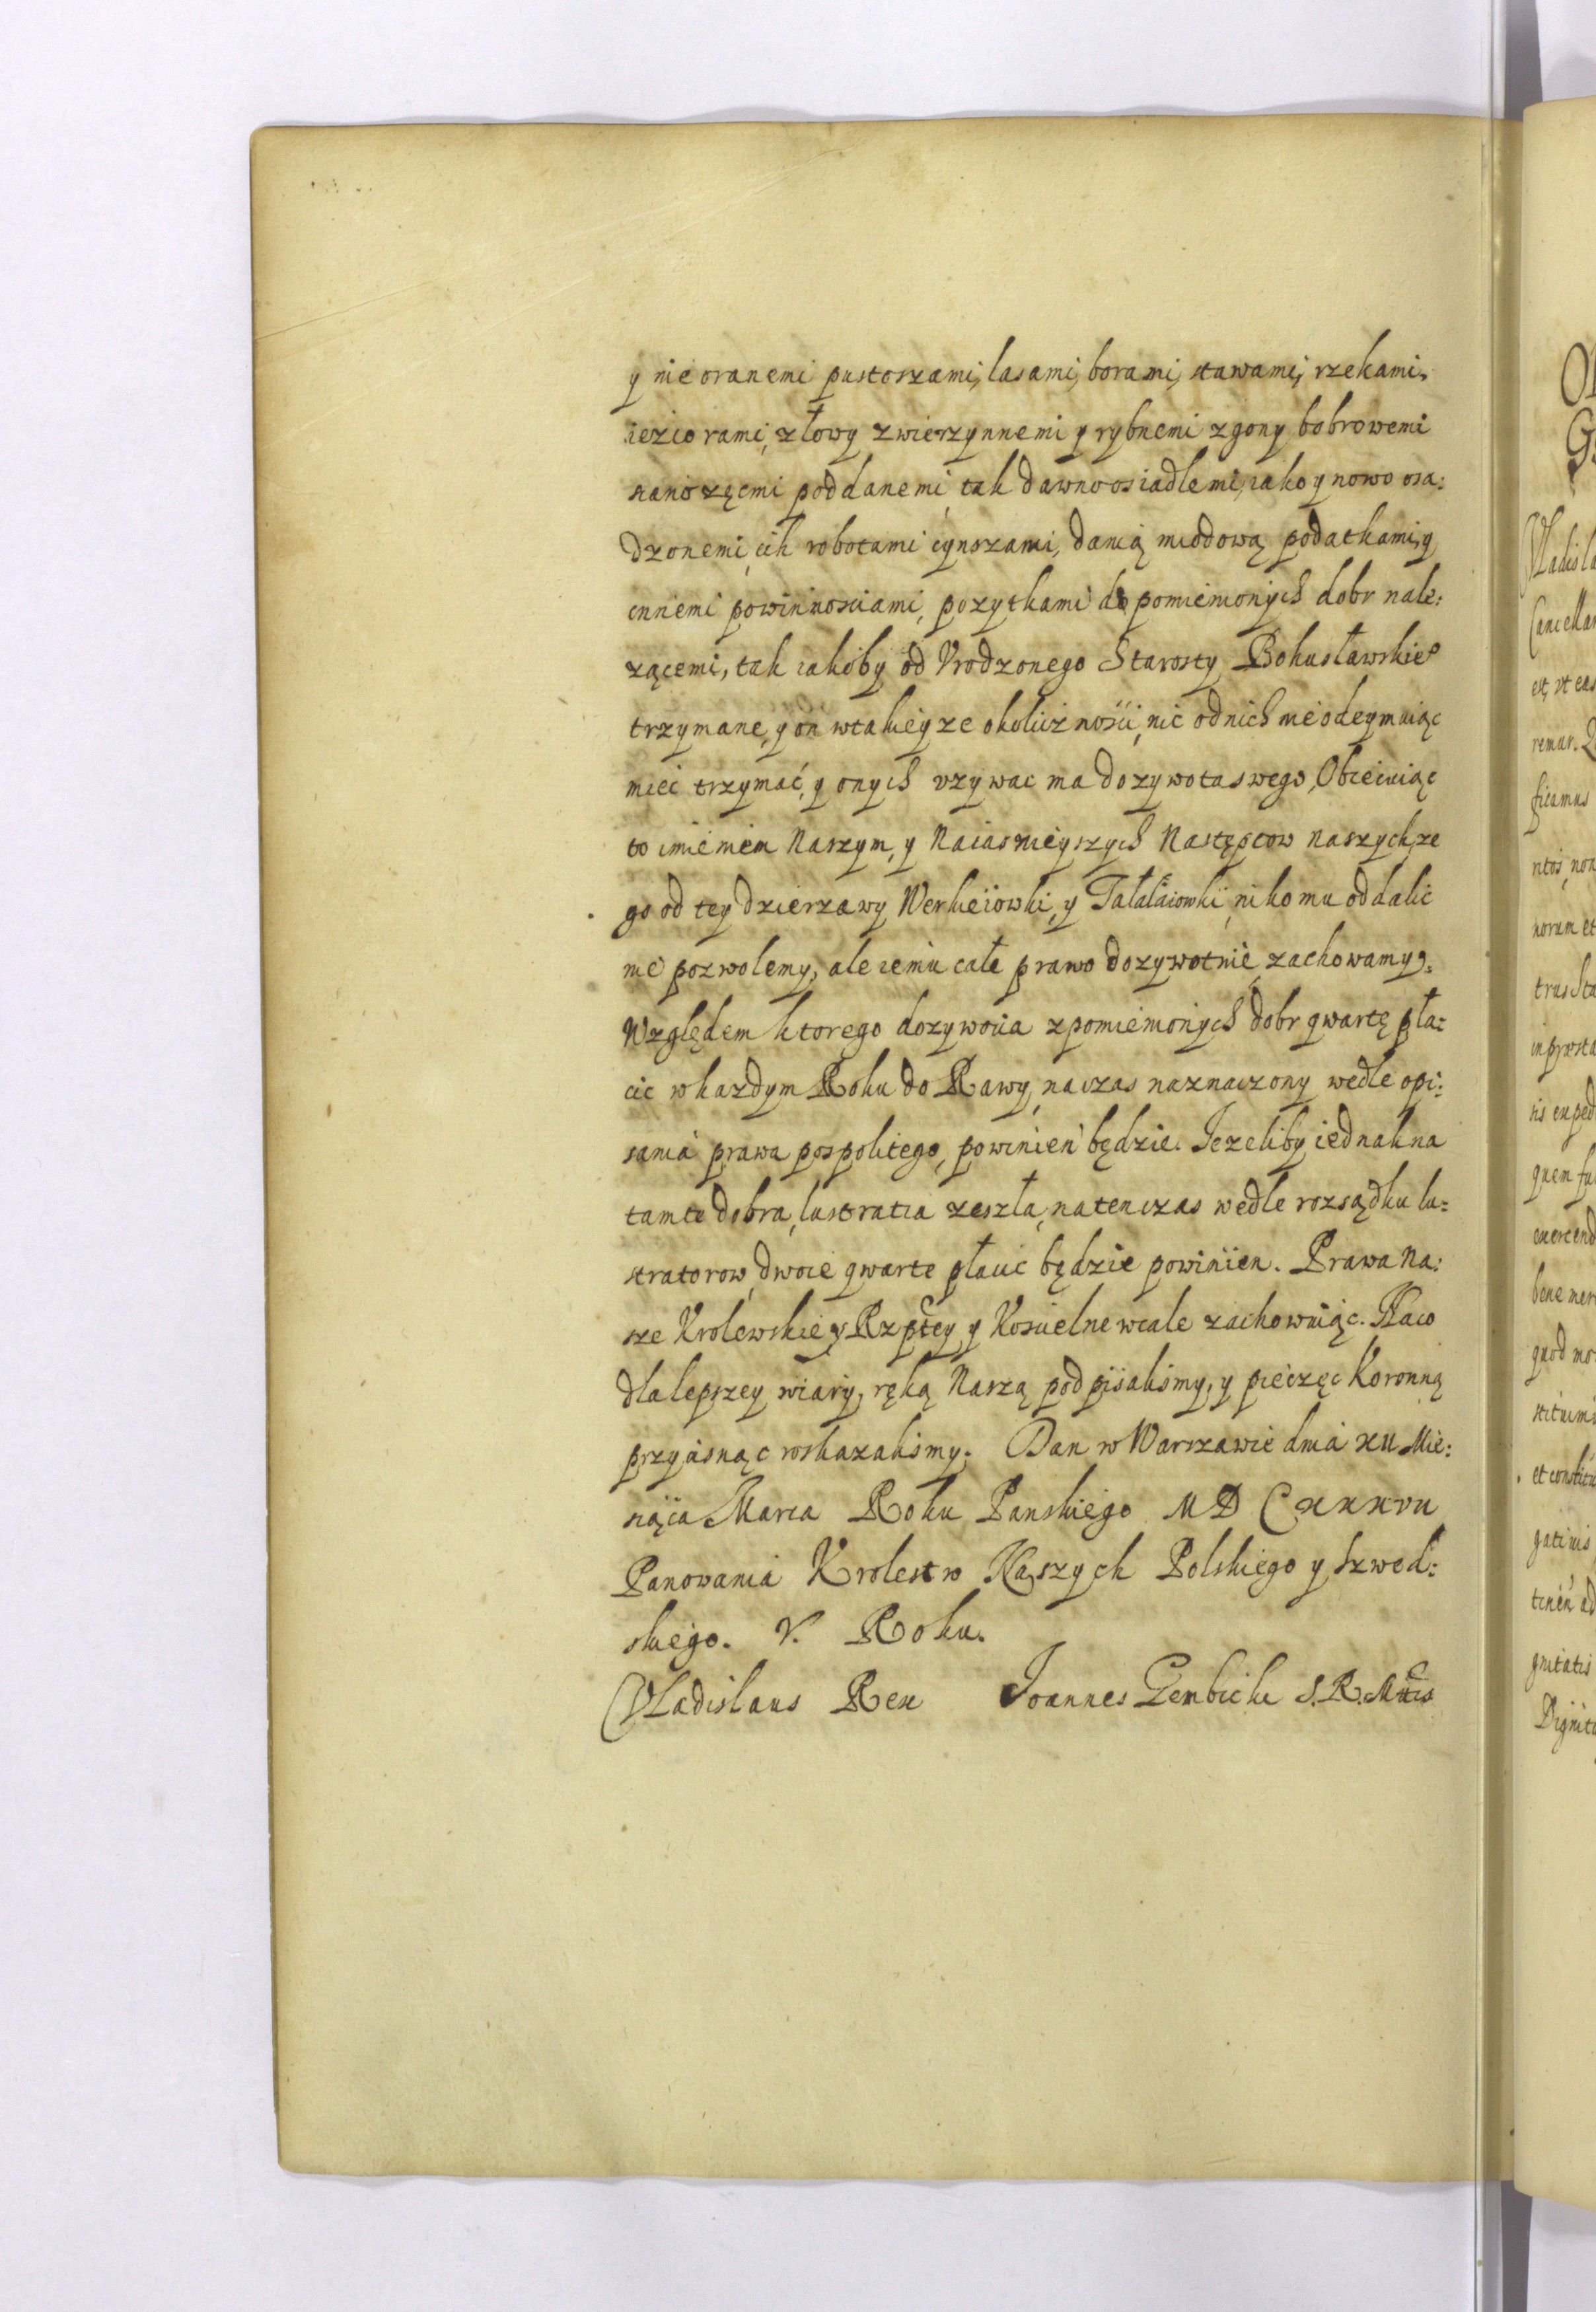 y nie oranemi pustoszami, lasami, borami, stawami, rzekami,
ieziorami, z łowy zwierzynnemi y rybnemi zgony bobrowemi
sianożęćmi poddanemi, tak dawno osiadłemi, iako y nowo osa:
dzonemi, ich robotami czynszami, danią miodową podatkami, y
innemi powinnosciami, pozytkami do pomienionych dobr nale:
zącemi, tak iakoby od Vrodzonego Starosty Bohusławskieº
trzymane, y on w takieyze okolicznosci, nic od nich nie odeymuiąc
miec trzymać, y onych vzywac ma do zywota swego, Obiecuiąc
to imieniem Naszym, y Naiasnieyszych Następcow naszych, ze
go od tey dzierzawy Werkeiowki, y Tałałaiowki, nikomu oddalic
nie pozwolemy, ale iemu całe prawo dozywotnie zachowamy.
Względem ktorego dozywocia z pomienionych dobr qwartę pła:
cic w kazdym Roku do Rawy, na czas naznaczony wedle opi:
sania prawa pospolitego, powinien będzie. Iezeliby iednak na
tamte dobra, lustratia zeszła, na ten czas wedle rozsądku lu:
stratorow, dwoie qwarte płacic będzie powinien. Prawa Na:
sze Krolewskie, y Rzptey y Koscielne wcale zachowuiąc. Na co
dla lepszey wiary, ręką Naszą podpisalismy, y pieczęc Koronną
przycisnąc roskazalismy. Dan w Warszawie dnia XII Mie:
siąca Marca Roku Panskiego M D C XXXVII
Panowania Krolestw Naszych Polskiego y Szwed:
skiego. V. Roku.
Vladislaus Rex Ioannes Gembicki S. R. Mttis
Ob
G
Vladisla
Cancellar
est, vt eas
remur.
ficamus
ritos, non
norum et
trus Sta
in præsta
sis exped
quem fu
exercend
bene mer
quod mo
stituimu
et constitu
gatiuis
tinen ad
gnitatis
Dignita